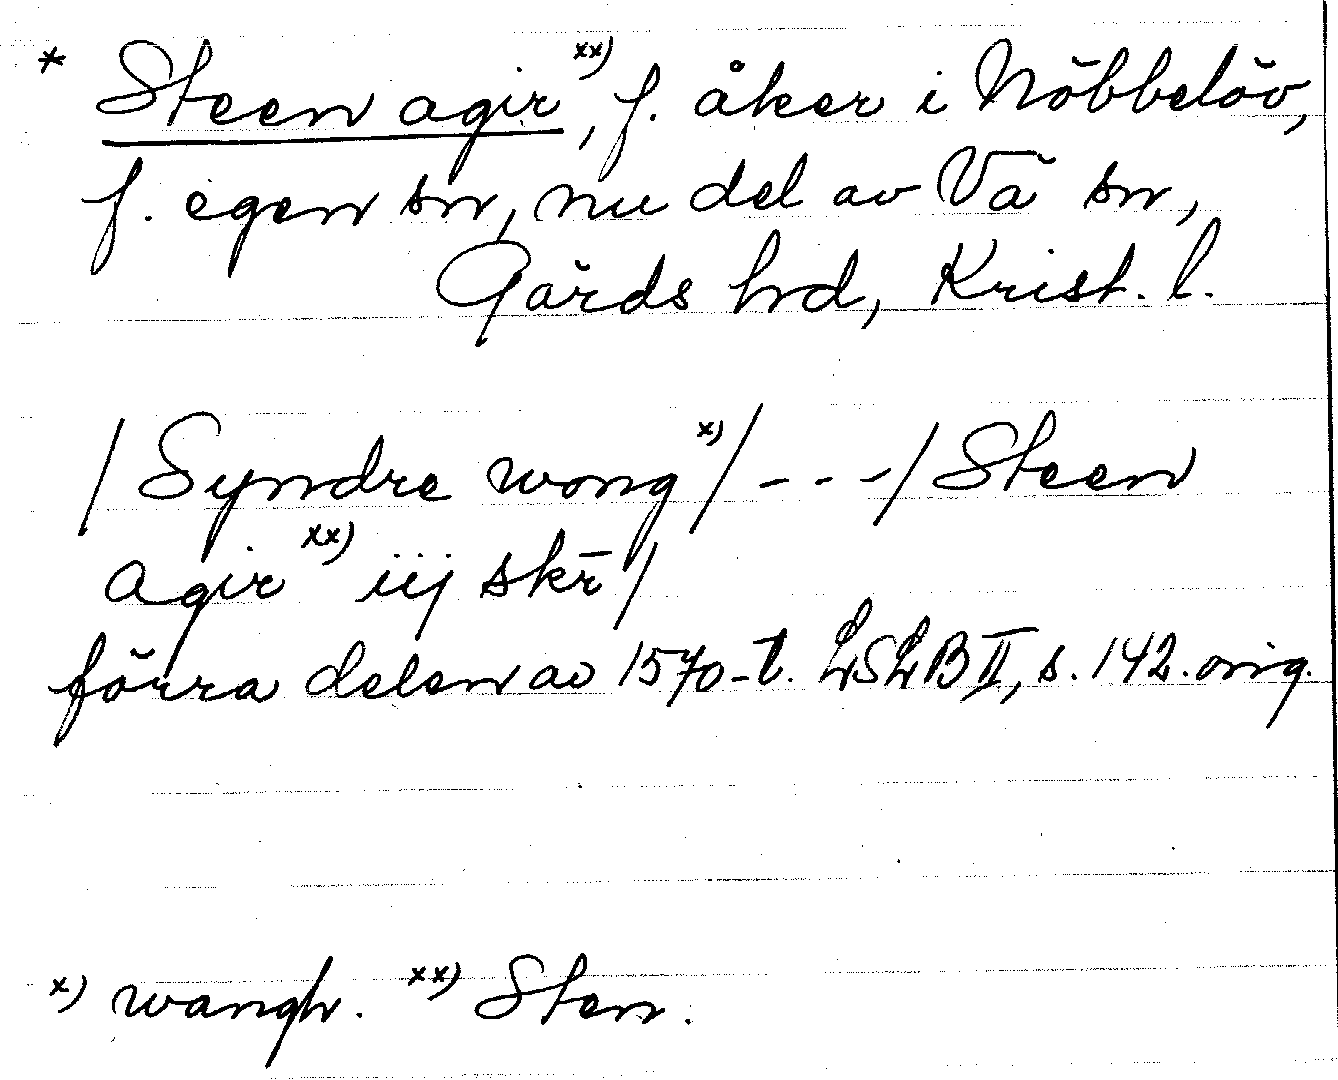 * Steen agir xx), f. åker i Nöbbelöv,
f. egen sn, nu del av Vä sn,
Gärds hd, Krist. l.
/ Syndre wong x) / - - - / Steen
agir xx) iij skr̄ /
förra delen av 1570-t. LSLB II, s. 142. orig.
x) wangh. xx) Sten.